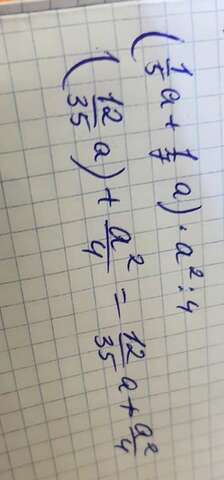 (1/5 a + 1/7 a) · a² : 4
(12/35 a) + a²/4 = 12/35 a + a²/4